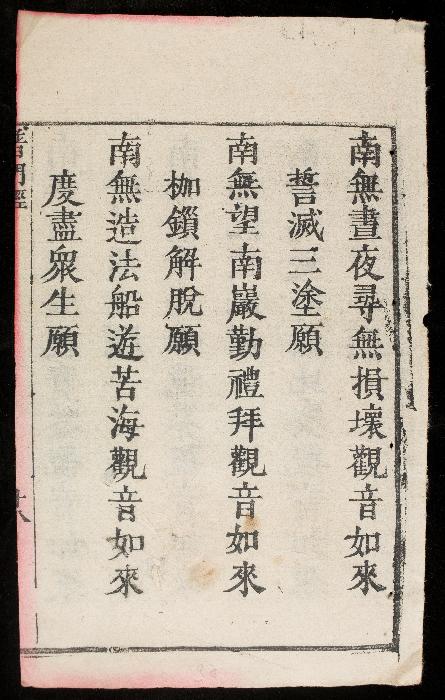 南無晝夜尋無損壞觀音如來
誓滅三塗願
南無望南巖勤禮拜觀音如來
枷鎖解脫願
南無造法船遊苦海觀音如來
度盡眾生願
門經
八